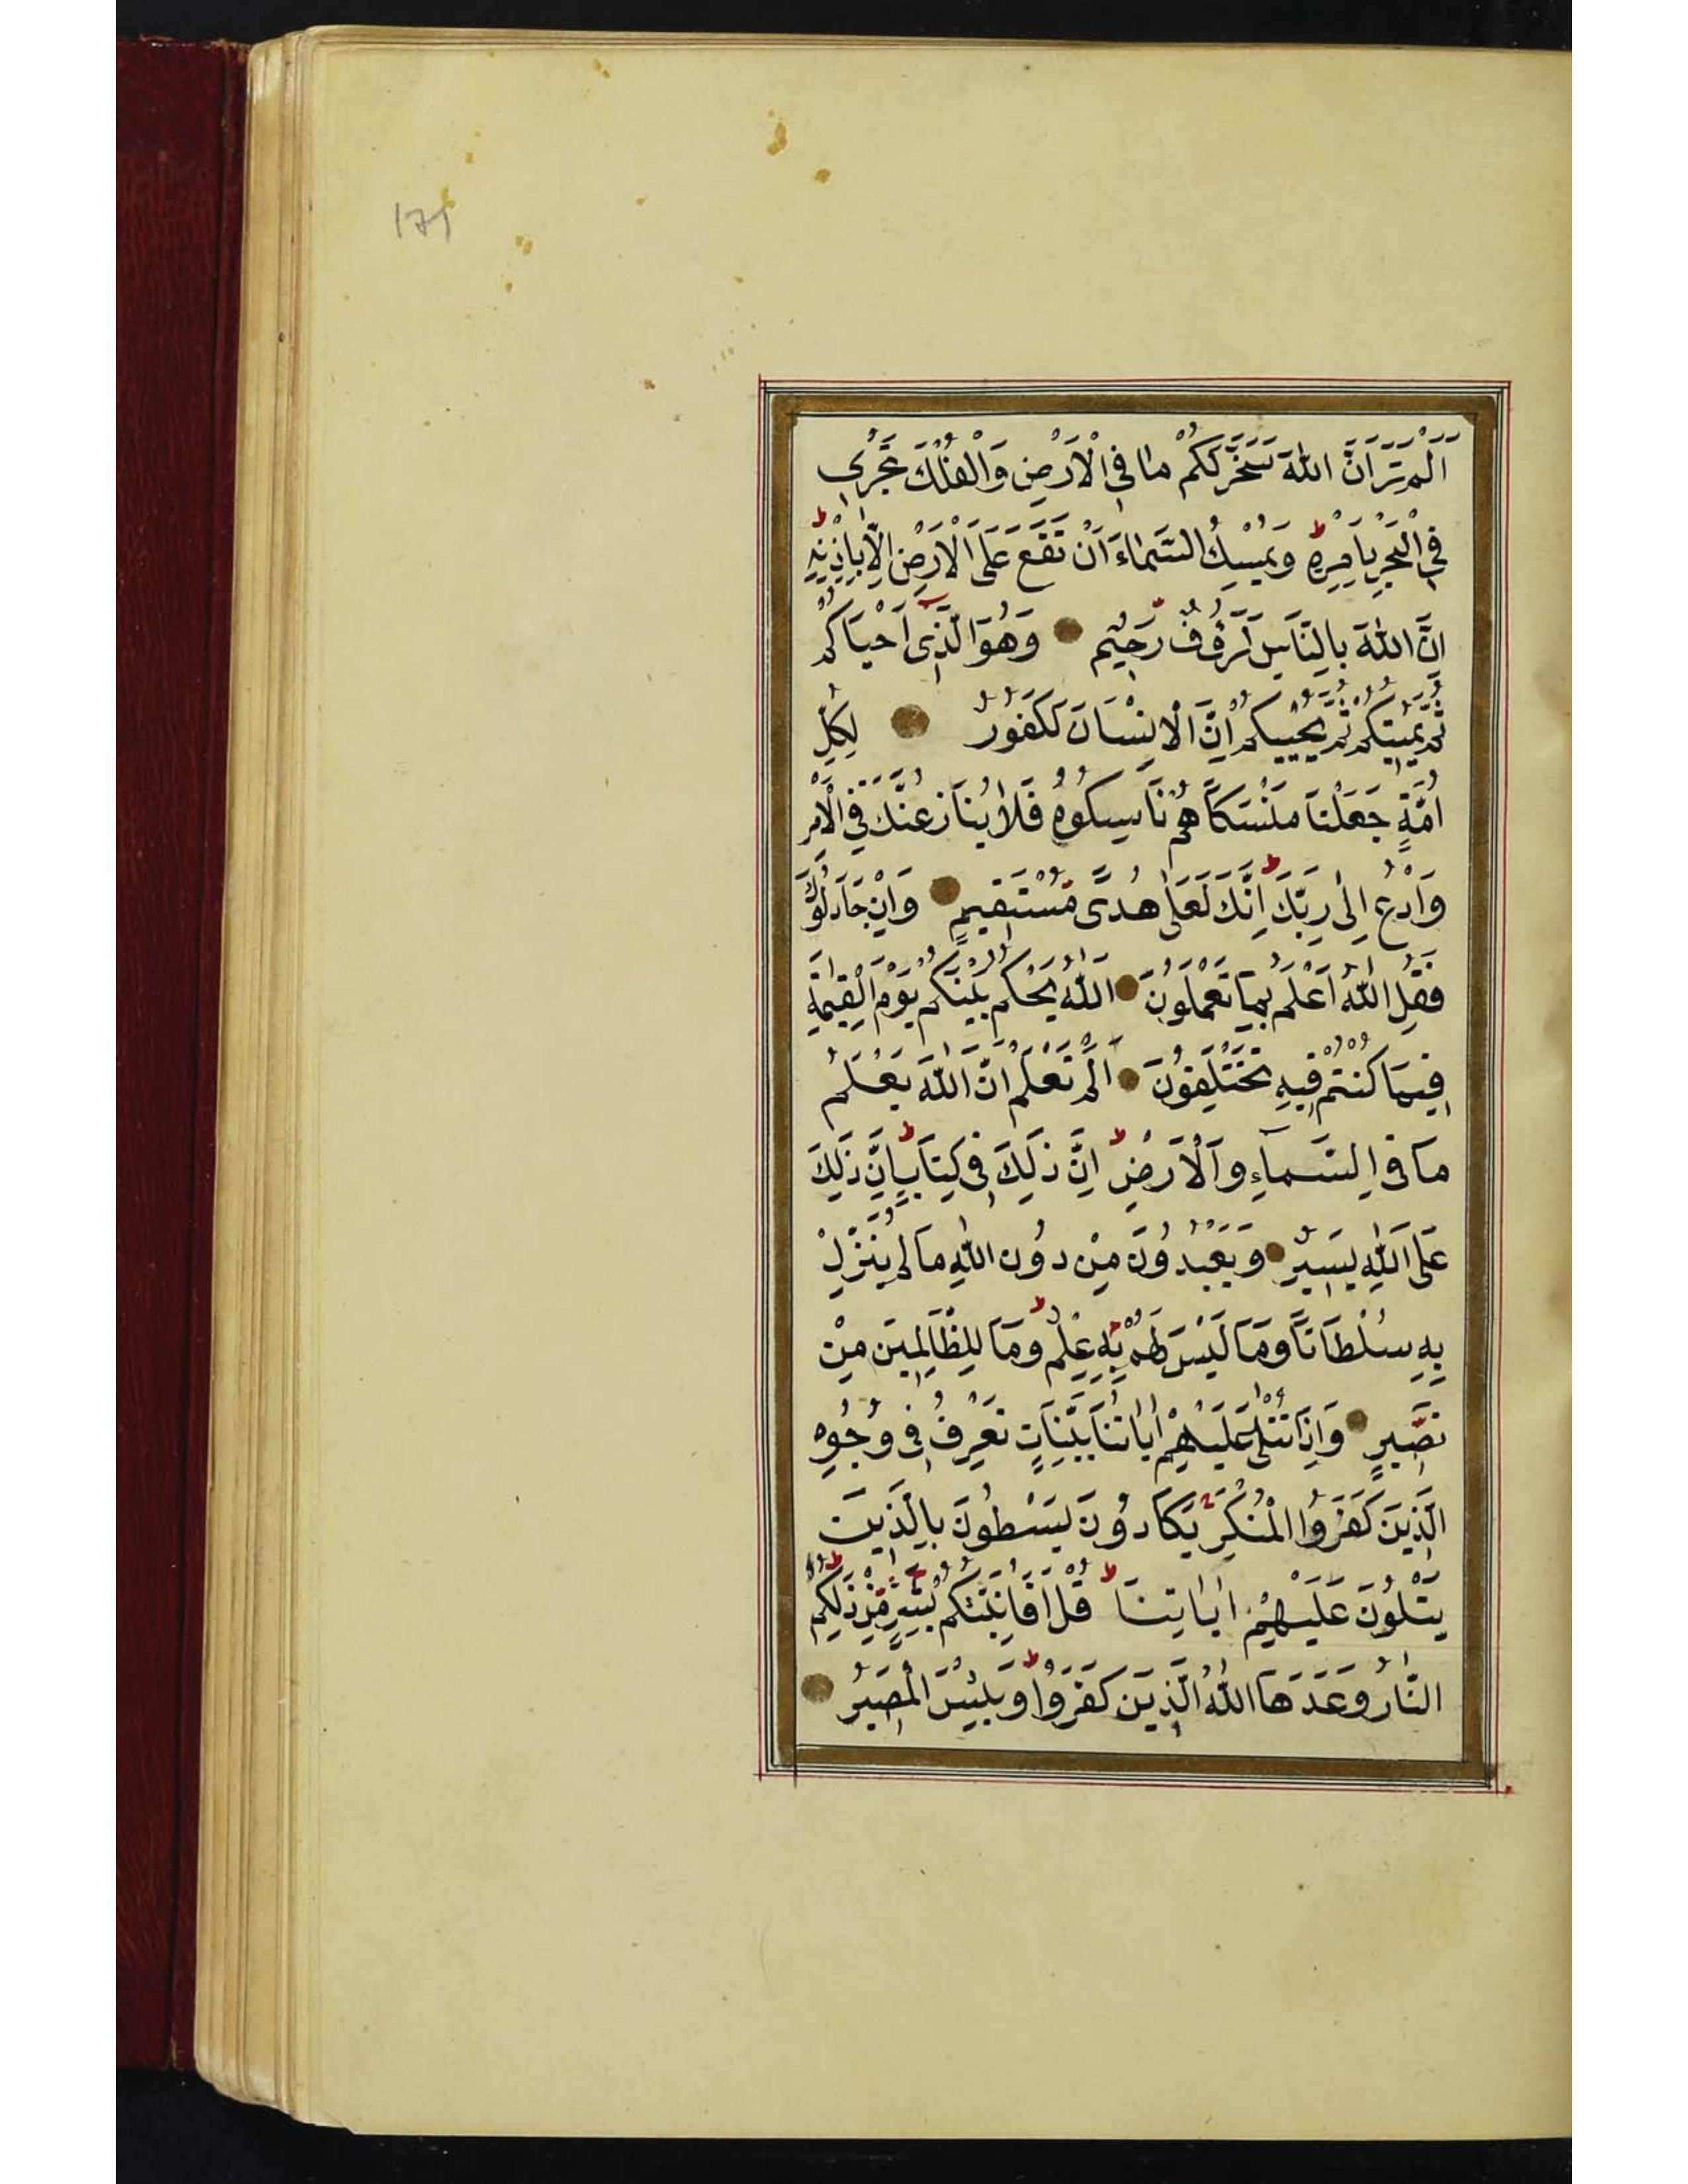 171
اَلَمْ تَرَ اَنَّ اللّٰهَ سَخَّرَ لَكُمْ مَا فِي الْاَرْضِ وَالْفُلْكَ تَجْرٖي
فِي الْبَحْرِ بِاَمْرِهٖ وَيُمْسِكُ السَّمَٓاءَ اَنْ تَقَعَ عَلَى الْاَرْضِ اِلَّا بِاِذْنِهٖ
اِنَّ اللّٰهَ بِالنَّاسِ لَرَؤُفٌ رَحٖيمٌ وَهُوَ الَّذٖى اَحْيَاكُمْ
ثُمَّ يُمٖيتُكُمْ ثُمَّ يُحْيٖيكُمْ اِنَّ الْاِنْسَانَ لَكَفُورٌ لِكُلِّ
اُمَّةٍ جَعَلْنَا مَنْسَكًا هُمْ نَاسِكُوهُ فَلَا يُنَازِعُنَّكَ فِي الْاَمْرِ
وَادْعُ اِلٰى رَبِّكَ اِنَّكَ لَعَلٰى هُدًى مُسْتَقٖيمٍ وَاِنْ جَادَلُوكَ
فَقُلِ اللّٰهُ اَعْلَمُ بِمَا تَعْمَلُونَ اَللّٰهُ يَحْكُمُ بَيْنَكُمْ يَوْمَ الْقِيٰمَةِ
فٖيمَا كُنْتُمْ فٖيهِ تَخْتَلِفُونَ اَلَمْ تَعْلَمْ اَنَّ اللّٰهَ يَعْلَمُ
مَا فِي السَّمَٓاءِ وَالْاَرْضِ اِنَّ ذٰلِكَ فٖى كِتَابٍ اِنَّ ذٰلِكَ
عَلَى اللّٰهِ يَسٖيرٌ وَيَعْبُدُونَ مِنْ دُونِ اللّٰهِ مَا لَمْ يُنَزِّلْ
بِهٖ سُلْطَانًا وَمَا لَيْسَ لَهُمْ بِهٖ عِلْمٌ وَمَا لِلظَّالِمٖينَ مِنْ
نَصٖيرٍ وَاِذَا تُتْلٰى عَلَيْهِمْ اٰيَاتُنَا بَيِّنَاتٍ تَعْرِفُ فٖى وُجُوهِ
الَّذٖينَ كَفَرُوا الْمُنْكَرَ يَكَادُونَ يَسْطُونَ بِالَّذٖينَ
يَتْلُونَ عَلَيْهِمْ اٰيَاتِنَا قُلْ اَفَاُنَبِّئُكُمْ بِشَرٍّ مِنْ ذٰلِكُمْ
النَّارُ وَعَدَهَا اللّٰهُ الَّذٖينَ كَفَرُوا وَبِئْسَ الْمَصٖيرُ